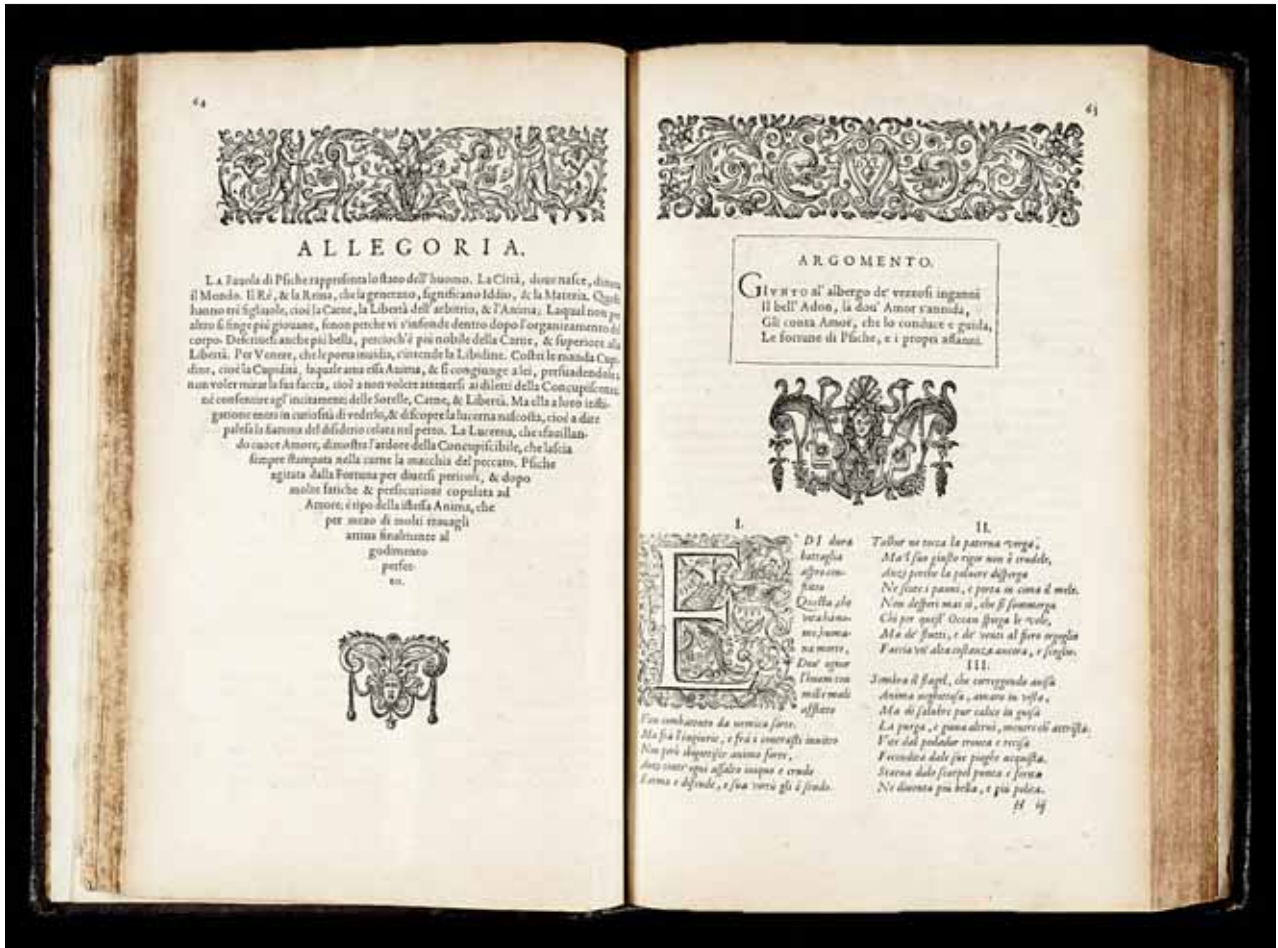 64
ALLEGORIA.
LA Fauola di Psiche rappresenta lo stato dell' huomo. La Città, doue nasce, dinota
il Mondo. Il Ré, & la Reina, che la generano, significano Iddio, & la Materia. Questi
hanno tré figliuole, cioé la Carne, la Libertà dell' arbitrio, & l'Anima; Laqual non per
altro si finge più giouane, senon perche vi s'infonde dentro dopo l'organizamento del
corpo. Descriuesi anche più bella, percioch'é più nobile della Carne, & superiore alla
Libertà. Per Venere, che le porta inuidia, s'intende la Libidine. Costei le manda Cupi-
dine, cioé la Cupidità, laquale ama essa Anima, & si congiunge a lei, persuadendole a
non voler mirar la sua faccia, cioè a non volere attenersi ai diletti della Concupiscenza,
né consentire agl' incitamenti delle Sorelle, Carne, & Libertà. Ma ella a loro insti-
gatione entra in curiosità di vederlo, & discopre la lucerna nascosta, cioé a dire
palesa la fiamma del disiderio celata nel petto. La Lucerna, che sfauillan-
do cuoce Amore, dimostra l'ardore della Concupiscibile, che lascia
sempre stampata nella carne la macchia del peccato. Psiche
agitata dalla Fortuna per diuersi pericoli, & dopo
molte fatiche & persecutioni copulata ad
Amore, é tipo della istessa Anima, che
per mezo di molti trauagli
arriua finalmente al
godimento
perfet-
to.
65
ARGOMENTO.
GIVNTO al' albergo de' vezzosi inganni
Il bell' Adon, là dou' Amor s'annida,
Gli conta Amor, che lo conduce e guida,
Le fortune di Psiche, e i propri affanni.
I.
E DI dura
battaglia
aspro con-
flitto
Questa, che
vita ha no-
me, huma-
na morte,
Dou' ognor
l'huom con
mille mali
afflitto
Vien combattuto da nemica sorte.
Ma frà l'ingiurie, e frà i contrasti inuitto
Non però sbigottisce animo forte,
Anzi contr' ogni assalto iniquo e crudo
L'arma e difende, e sua virtù gli é scudo.
II.
Talhor ne tocca la paterna verga,
Ma'l suo giusto rigor non è crudele,
Anzi perche la poluere disperga
Ne scote i panni, e porta in cima il mele.
Non disperi mai sì, che si sommerga
Chi per quest' Ocean spiega le vele,
Ma de' flutti, e de' venti al fiero orgoglio
Faccia vn' alta costanza ancora, e scoglio.
III.
Sembra il flagel, che correggendo auisa
Anima neghittosa, amaro in vista,
Ma di salubre pur calice in guisa
La purga, e gioua altrui, mentre ch' attrista.
Vite dal potador tronca e recisa
Fecondità dale sue piaghe acquista.
Statua dalo scarpel punta e ferita
Ne diuenta più bella, e più polita.
H iij